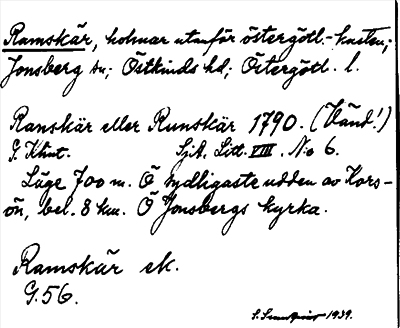 Ramskär, holmar utanför östergötl.-kusten;
Jonsberg sn; Östkinds hd; Östergötl. l.
Ranskär eller Runskär 1790. (Vänd!)
G. Klint. SjA. Litt. VIII. No 6.
Läge 700 m. Ö sydligaste udden av Kors-
ön, bel. 8 km. Ö Jonsbergs kyrka.
Ramskär ek.
G.56.
S. 1939.